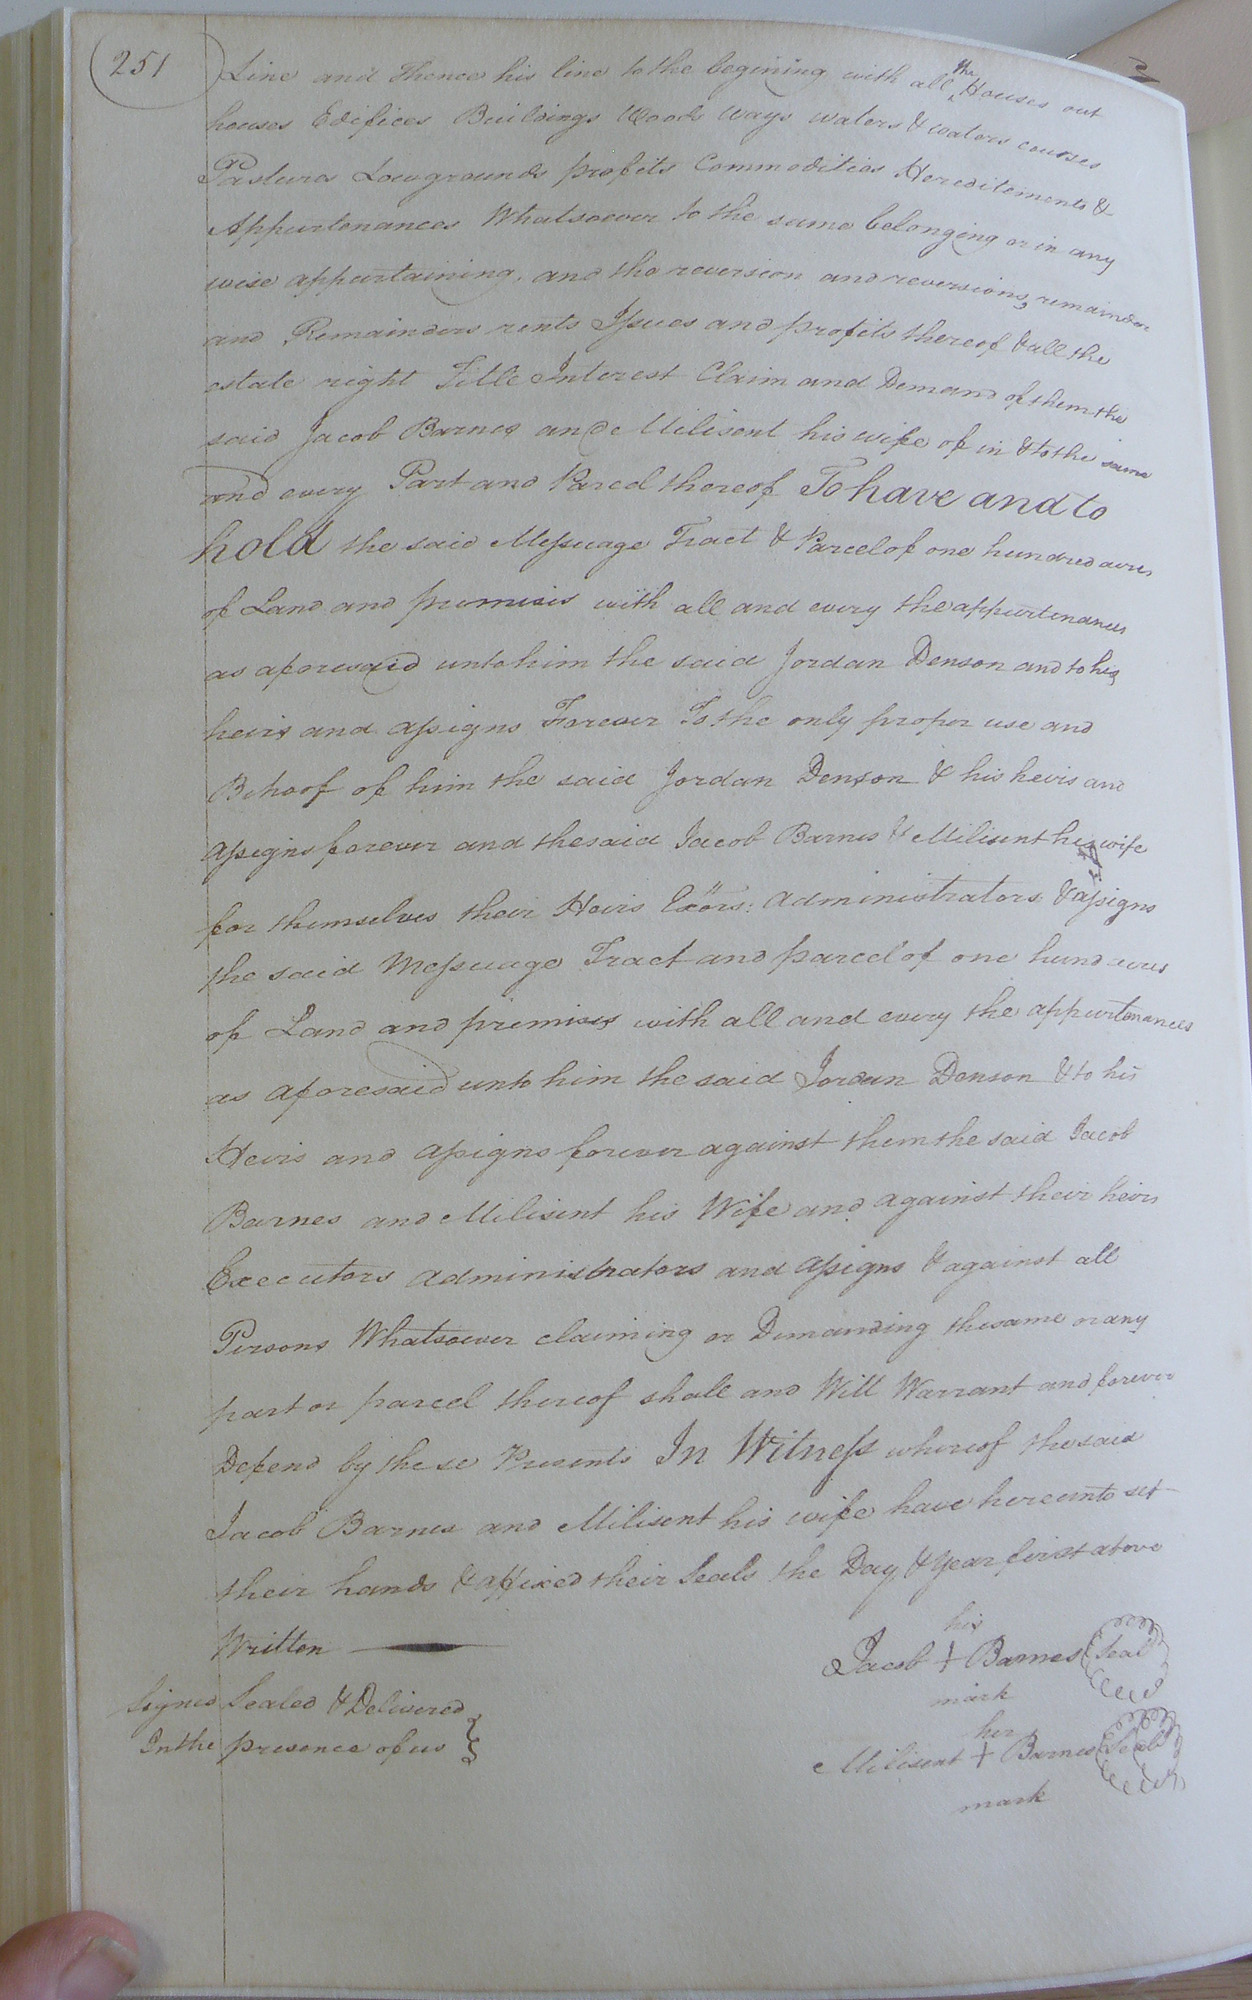 251
Line and Thence his line to the begining with all the Houses out
houses Edifices Buildings Woods ways waters & waters courses
Pasture Lowgrounds profits Commodities Hereditements &
Appurtenances Whatsoever to the same belonging or in any
wise appurtaining, and the reversion and reversions, remainder
and Remainders rents Issues and profits thereof & all the
estate right Title Interest Claim and Demand of them the
said Jacob Barnes and Milisent his wife of in & to the same
and every Part and Parcel thereof To have and to
hold the said Messuage Tract & Parcel of one hundred acres
of Land and premises with all and every the appurtenances
as aforesaid unto him the said Jordan Denson and to his
heirs and assigns Forever To the only proper use and
Behoof of him the said Jordan Denson & his heirs and
assigns forever and the said Jacob Barnes & Milisent his wife
for themselves their Heirs Exors: administrators & assigns
the said Messuage Tract and parcel of one hund acres
of Land and premises with all and every the appurtenances
as aforesaid unto him the said Jordan Denson & to his
Heirs and assigns forever against them the said Jacob
Barnes and Milisent his Wife and against their heirs
Executors administrators and assigns & against all
Persons Whatsoever claiming or Demanding the same or any
part or parcel thereof shall and Will Warrant and forever
Defend by these Presents In Witness whereof the said
Jacob Barnes and Milisent his wife have hereunto set
their hands & affixed their Seals the Day & Year first above
Written
his
Jacob + Barnes Seal
mark
Signed Sealed & Delivered
her
In the presence of us
Milisent + Barnes Seal
mark